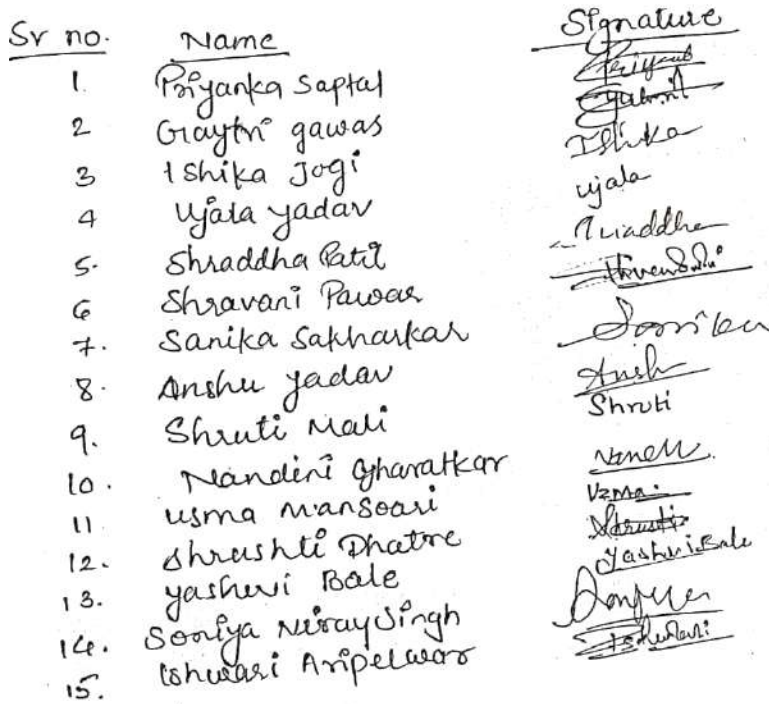 Sr no. Name Signature
1. Priyanka Saptal
2 Gaytri gawas
3 Ishika Jogi Ishika
4 Ujala yadav ujala
5. Shraddha Patil
6 Shravani Pawar
7. Sanika Sakharkar Sanika
8. Anshu yadav Ansh
9. Shruti Mali Shruti
10. Nandini Gharatkar
11 usma Mansoari Uzma.
12. Shrushti Dhatre Shrusti
13. yashwi Bale Yashwi Bale
14. Soniya Niray Singh
15. Ishwari Aripelwar Ishwari